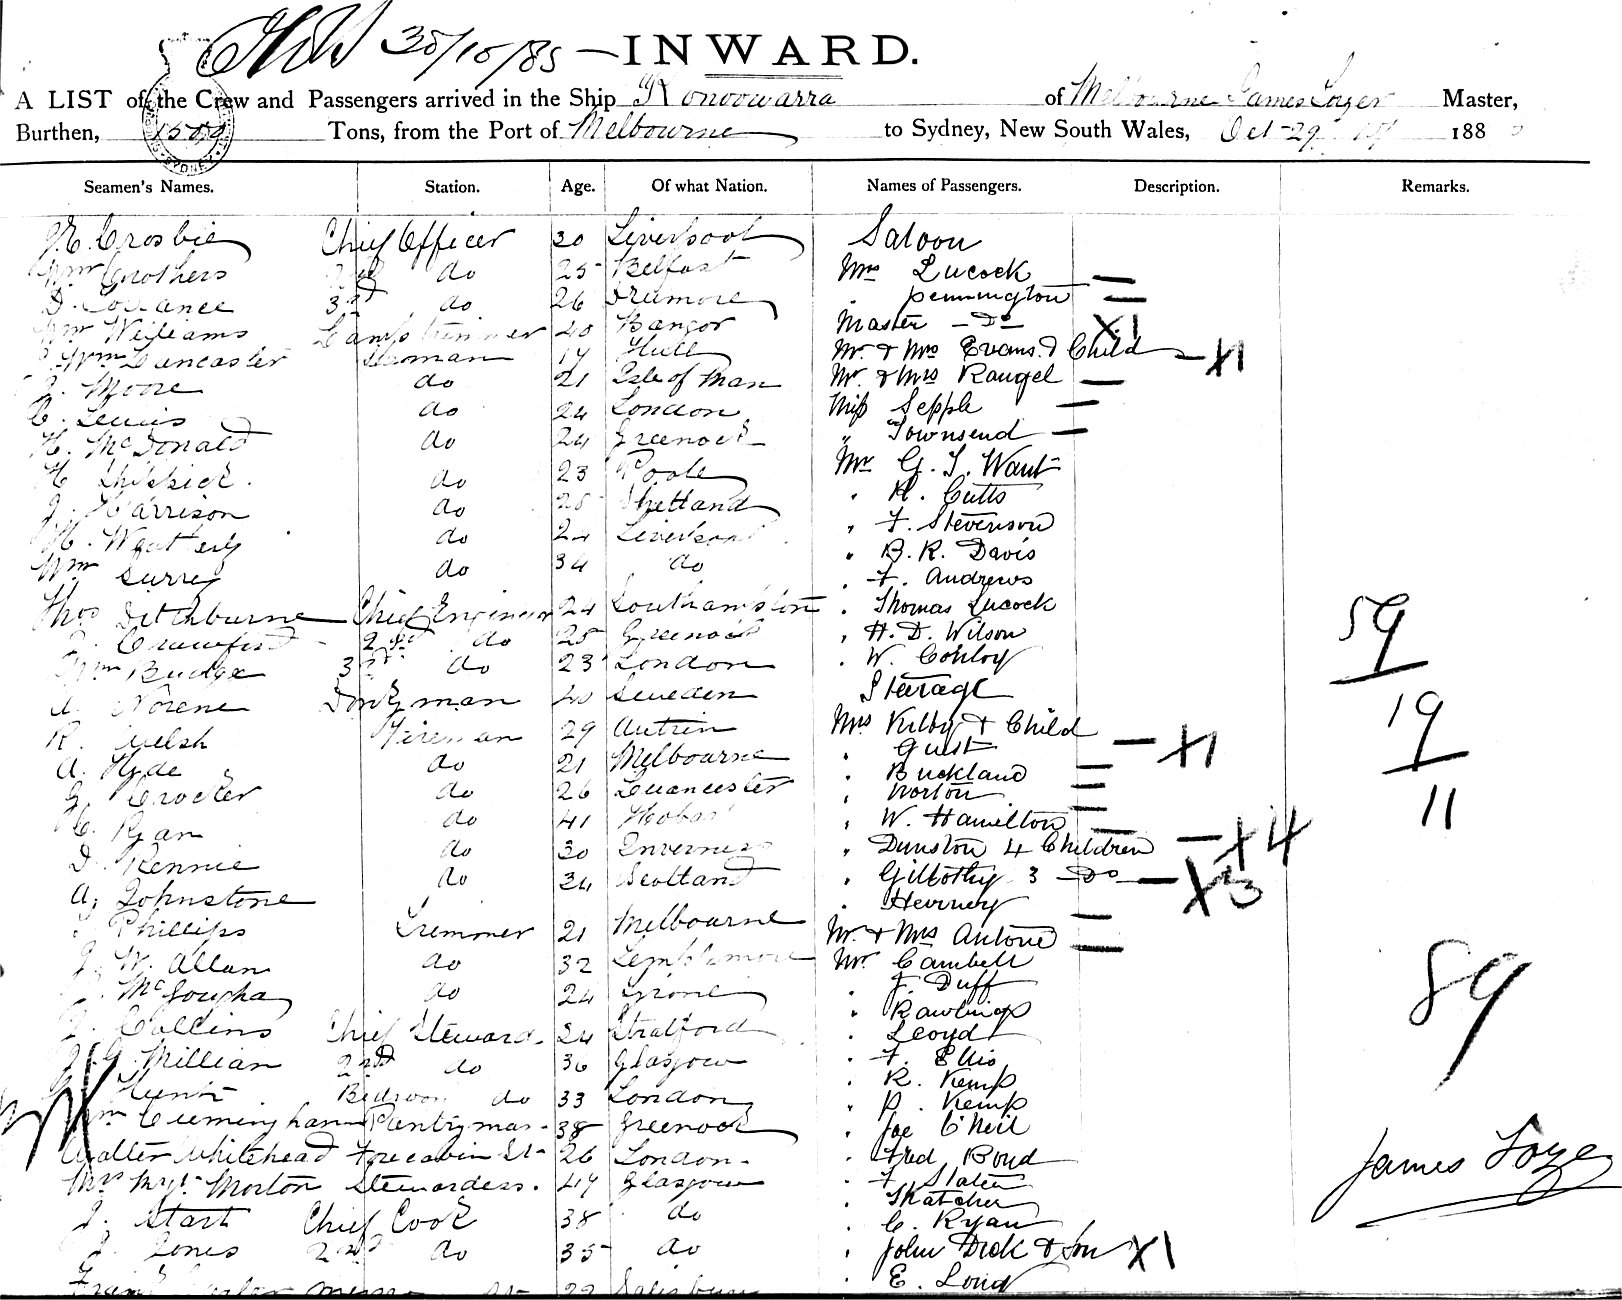 30/10/85 — INWARD.
A LIST of the Crew and Passengers arrived in the Ship Konoowarra of Melbourne James Lozer Master,
Burthen, 1500 Tons, from the Port of Melbourne to Sydney, New South Wales, Oct 29 188
Seamen's Names. Station. Age. Of what Nation. Names of Passengers. Description. Remarks.
Crosbie Chief Officer 30 Liverpool Saloon
Wm Crothers 2nd do 25 Belfast Mrs Lucock —
D. Torrance 3rd do 26 Dromore " Pennington —
Wm Williams Lamp trimmer 40 Bangor Master — Do — X1
Wm Lancaster Seaman 19 Hull Mr & Mrs Evans & Child — X1
J. Moore do 21 Isle of Man Mr & Mrs Raugel —
C. Lewis do 24 London Miss Sepple —
H. McDonald do 24 Greenock " Townsend —
H. do 23 Poole Mr G. T. Want
J. Harrison do 25 Shetland " H. Cutts
H. do 24 Liverpool " F. Stevenson
Wm Surrey do 34 do " B. R. Davis
" F. Andrews
Thos Ditchburne Chief Engineer 24 Southampton " Thomas Lucock
J. Crawford 2nd do 25 Greenock " H. D. Wilson
Wm Budge 3rd do 23 London " W.
A. Norene Donkyman 40 Sweden Steerage
R. Welsh Fireman 29 Mrs Kilby & Child — X1
A. Hyde do 21 Melbourne " Guest —
G. Crocker do 26 " Buckland —
C. Ryan do 41 Hobart " Norton —
D. Rennie do 30 Inverness " W. Hamilton —
A. Johnstone do 34 Scotland " Dunston 4 Children — X4
" 3 Do — X3
" Hevney —
Phillips Trimmer 21 Melbourne Mr & Mrs Antone —
J. W. Allan do 32 Templemore Mr Cambell
do 24 " J. Duff
" Rawlings
J. Collins Chief Steward 24 Stratford " Lloyd
J. G. Millian 2nd do 36 Glasgow " F. Ellis
" R. Kemp
Hunt Bedroom do 33 London " P. Kemp
Wm Cuemingham Pantryman 38 Greenock " Joe O'Neil
Walter Whitehead Forecabin St- 26 London " Fred Bond
Mrs Mgt Morton Stewardess. 47 Glasgow " F. Slater
" Thatcher
J. Start Chief Cook 38 do " C. Ryan
J. Jones 2nd do 35 do " John Dick & Son X1
Frank Mess 22 Salisbury " E. Loud
59
19
11
89
James Lozer